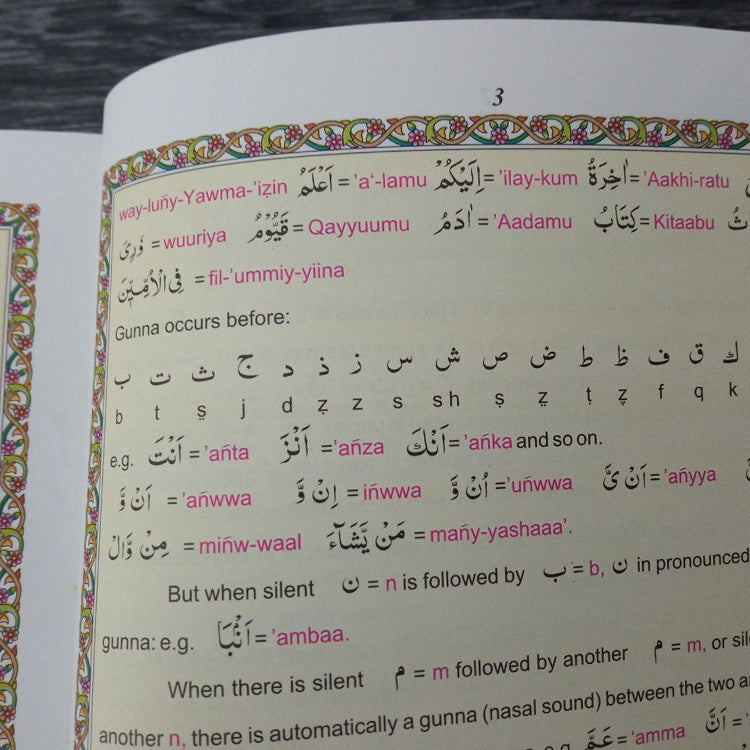 3
way-luńy-Yawma-'iẓin اَعْلَمُ = 'a‘-lamu اِلَيْكُمْ = 'ilay-kum اٰخِرَةُ = 'Aakhi-ratu
وُرِىَ = wuuriya قَيُّوْمُ = Qayyuumu اٰدَمُ = 'Aadamu كِتَابُ = Kitaabu
فِى الْاُمِّيّٖنَ = fil-'ummiy-yiina
Gunna occurs before:
ب ت ث ج د ذ ز س ش ص ض ط ظ ف ق ك
b t s̱ j d ẕ z s sh ṣ ẓ ṭ ẓ f q k
e.g. اَنْتَ = 'ańta اَنْزَ = 'ańza اَنْكَ = 'ańka and so on.
اَنْ وَّ = 'ańwwa اِنْ وَّ = ińwwa اُنْ وَّ = 'uńwwa اَنْ ىَّ = 'ańyya
مِنْ وَّالْ = mińw-waal مَنْ يَّشَآءَ = mańy-yashaaa'.
But when silent ن = n is followed by ب = b, ن in pronounced
gunna: e.g. اَنْۢبَا = 'ambaa.
When there is silent م = m followed by another م = m, or
another n, there is automatically a gunna (nasal sound) between the two
عَمَّ = 'amma اَنَّ =